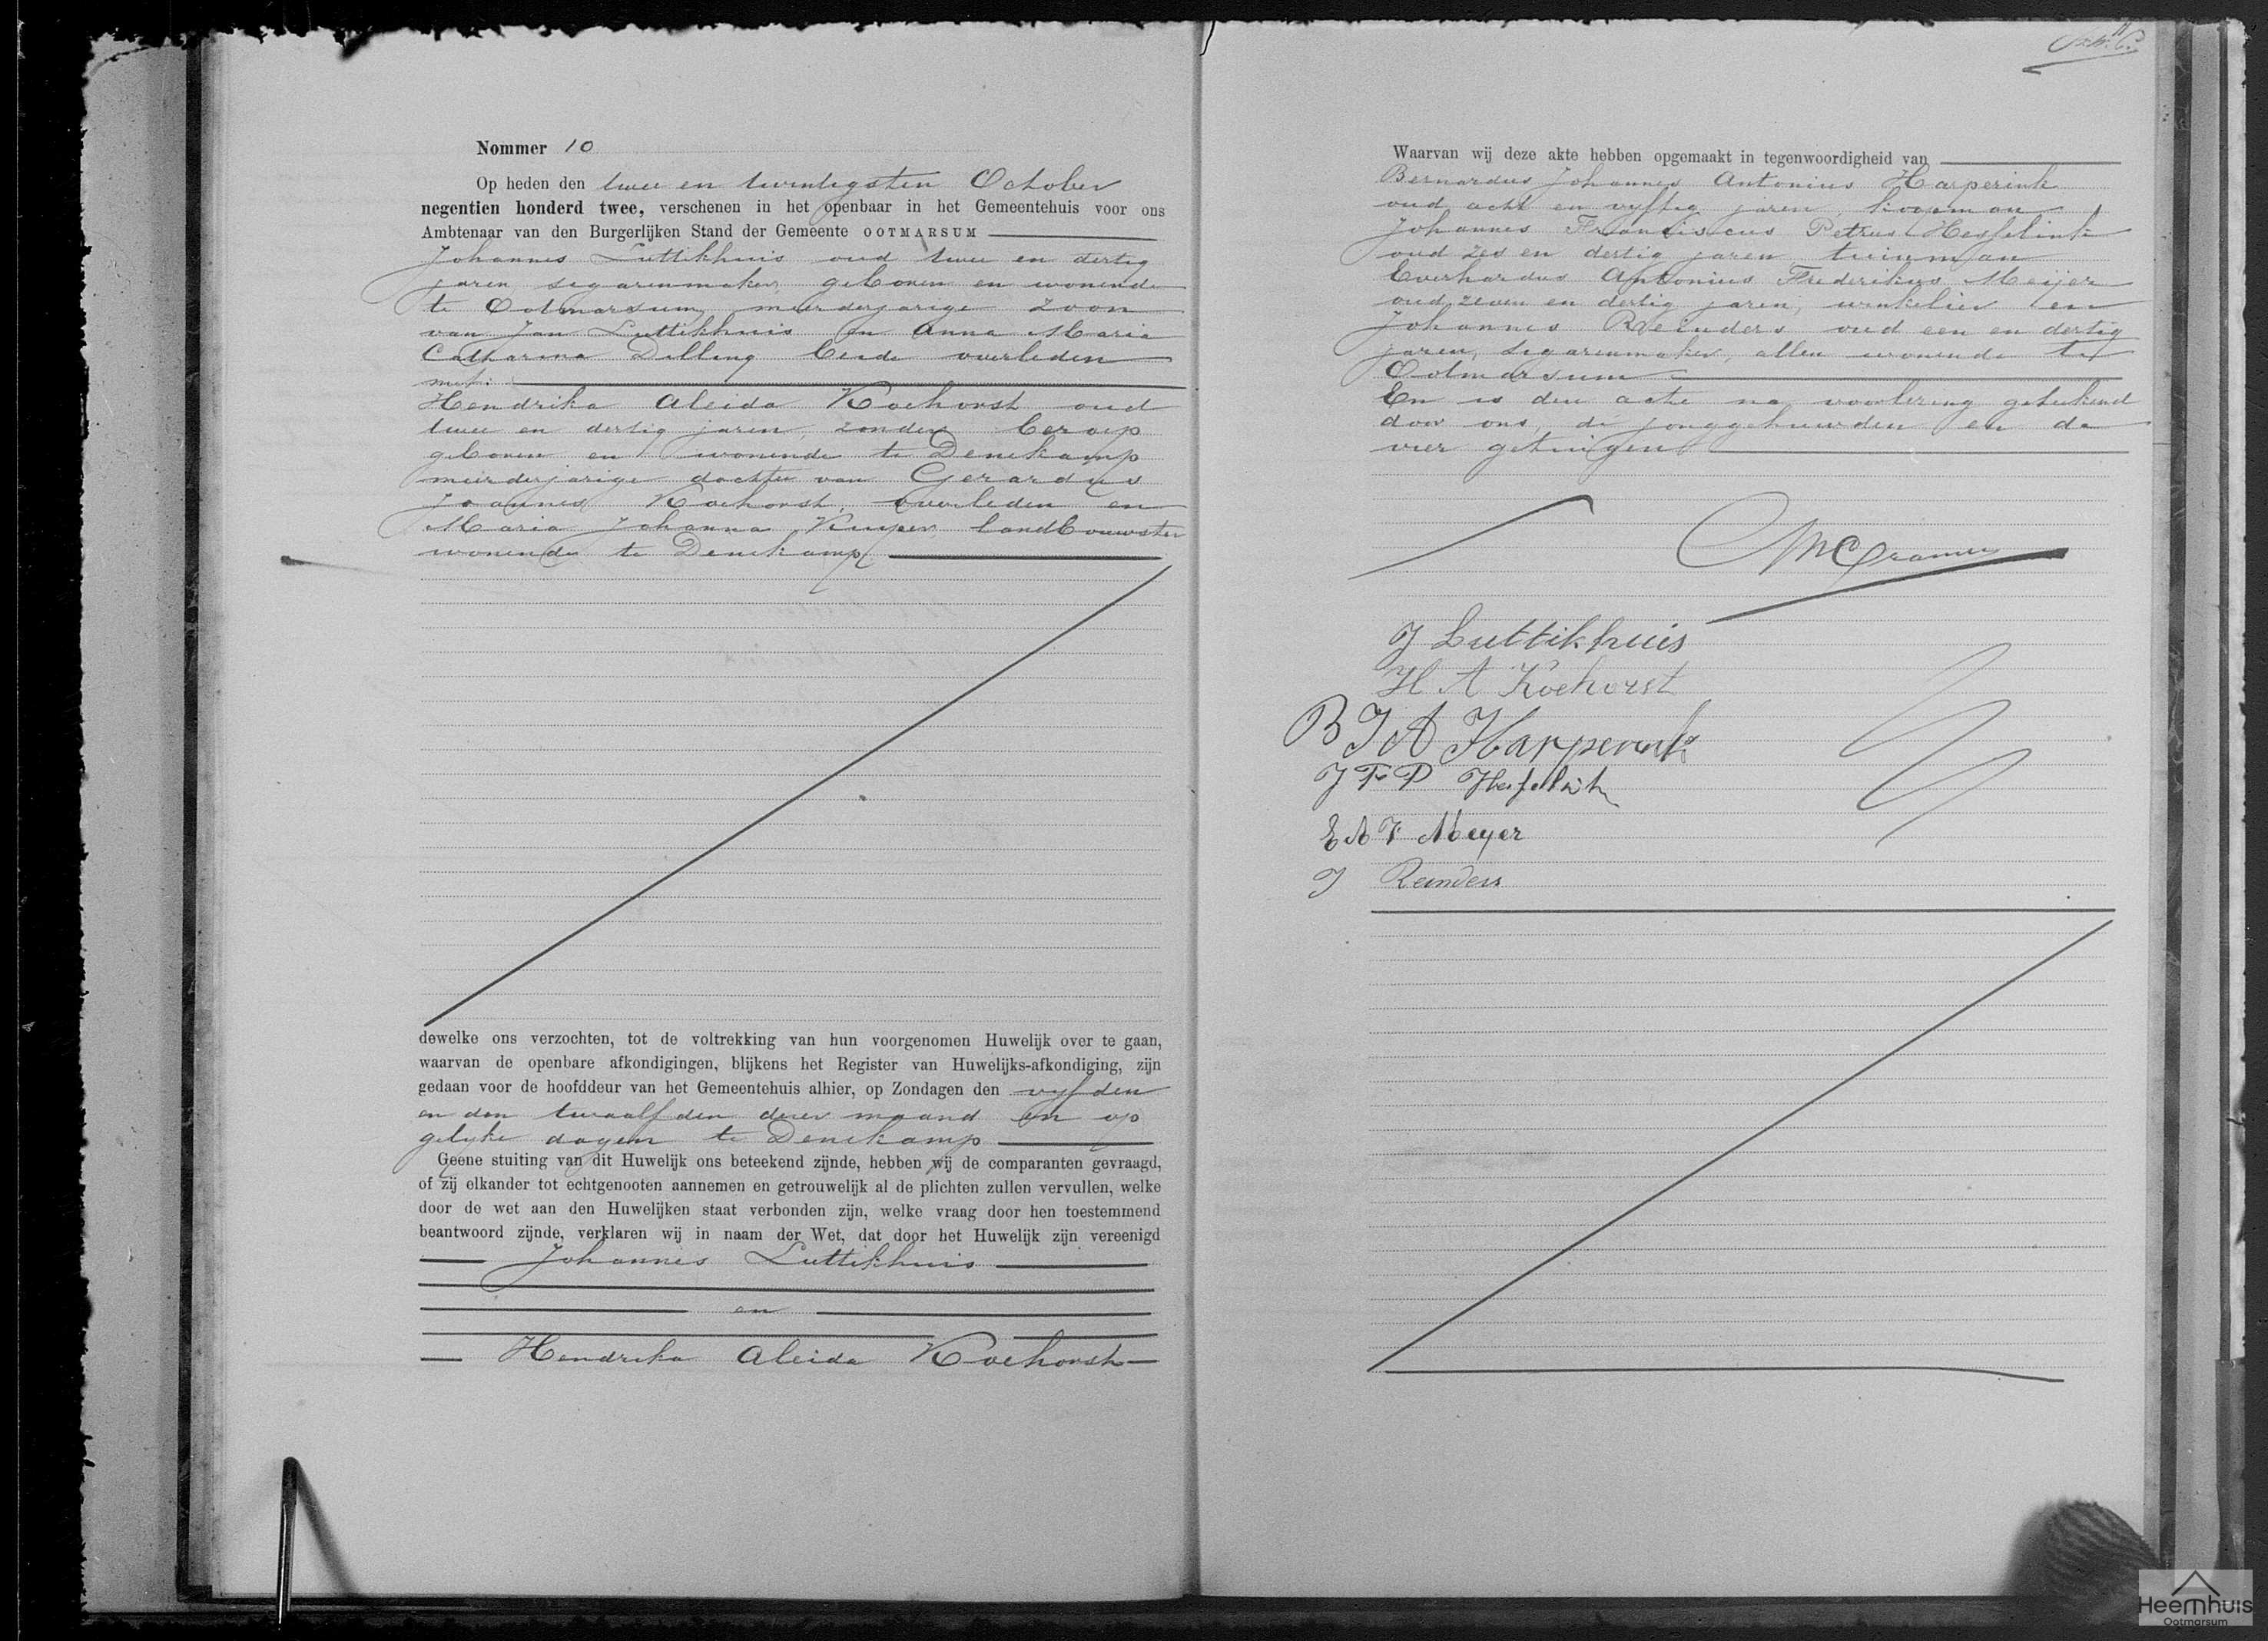 Nommer 10
Op heden den twee en twintigsten October
negentien honderd twee, verschenen in het openbaar in het Gemeentehuis voor ons
Ambtenaar van den Burgerlijken Stand der Gemeente OOTMARSUM
Johannes Luttikhuis oud twee en dertig
jaren sigarenmaker, geboren en wonende
te Ootmarsum, meerderjarige zoon
van Jan Luttikhuis en Anna Maria
Catharina Dilling beide overleden
met:
Hendrika Aleida Koehorst oud
twee en dertig jaren, zonder beroep
geboren en wonende te Denekamp
meerderjarige dochter van Gerardus
Joannes Koehorst, overleden en
Maria Johanna Kuiper landbouwster
wonende te Denekamp
dewelke ons verzochten, tot de voltrekking van hun voorgenomen Huwelijk over te gaan,
waarvan de openbare afkondigingen, blijkens het Register van Huwelijks-afkondiging, zijn
gedaan voor de hoofddeur van het Gemeentehuis alhier, op Zondagen den vyfden
en den twaalfden dezer maand en op
gelyke dagen te Denekamp
Geene stuiting van dit Huwelijk ons beteekend zijnde, hebben wij de comparanten gevraagd,
of zij elkander tot echtgenooten aannemen en getrouwelijk al de plichten zullen vervullen, welke
door de wet aan den Huwelijken staat verbonden zijn, welke vraag door hen toestemmend
beantwoord zijnde, verklaren wij in naam der Wet, dat door het Huwelijk zijn vereenigd
Johannes Luttikhuis
en
Hendrika Aleida Koehorst
Waarvan wij deze akte hebben opgemaakt in tegenwoordigheid van
Bernardus Johannes Antonius Harperink
oud acht en vyftig jaren, koopman
Johannes Franciscus Petrus Hesselink
oud zes en dertig jaren tuinman
Everhardus Antonius Frederikus Meijer
oud zeven en dertig jaren, winkelier en
Johannes Reinders oud een en dertig
jaren, sigarenmaker, allen wonende te
Ootmarsum
En is deze acte na voorlezing geteekend
door ons, de jonggehuwden en de
vier getuigen
Cramer
J Luttikhuis
H A Koehorst
B J A Harperink
J F P Hesselink
E A F Meyer
J Reinders
Heemhuis
Ootmarsum